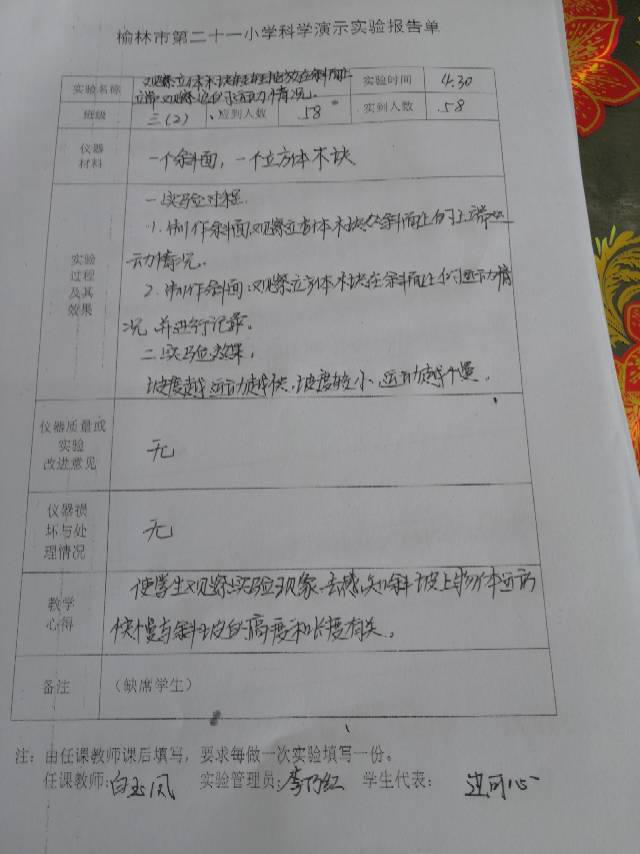 榆林市第二十一小学科学演示实验报告单
实验名称 观察立体木块 放在斜面
观察记 运动情况。 实验时间 4.30
班级 三(2) 应到人数 58 实到人数 58
仪器
材料 一个斜面，一个立方体木块
实验
过程
及其
效果
一实验过程
1.制作斜面观察立方体木块从斜面上的上端
动情况。
2.制作斜面:观察立方体木块在斜面上的运动情
况,并进行记录。
二实验效果:
坡度越 运动越快,坡度越小,运动越慢。
仪器质量或
实验
改进意见 无
仪器损
坏与处
理情况 无
教学
心得 使学生观察实验现象,去感知斜坡上物体运动
快慢与斜坡的高度和长度有关。
备注 (缺席学生)
注:由任课教师课后填写，要求每做一次实验填写一份。
任课教师:白玉凤 实验管理员:李乃红 学生代表: 可心